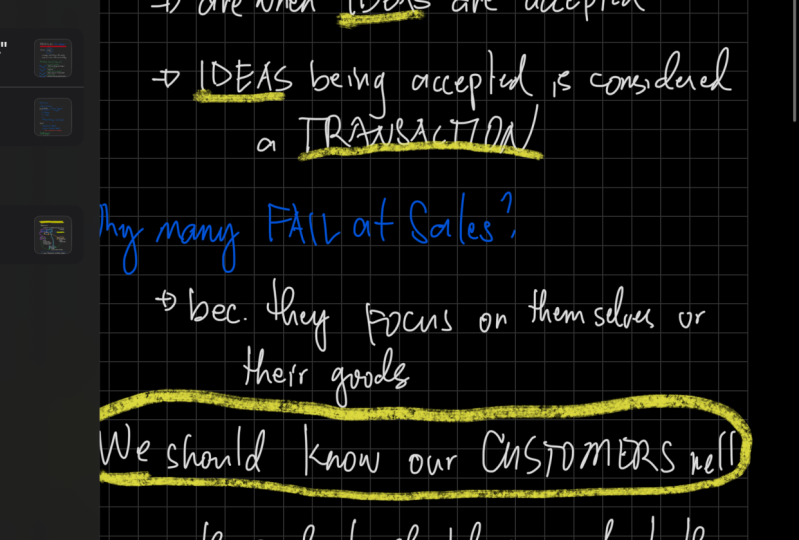 → are when IDEAS are accepted
→ IDEAS being accepted is considered
a TRANSACTION
Why many FAIL at Sales?
→ bec. they FOCUS on themselves or
their goods
We should know our CUSTOMERS well